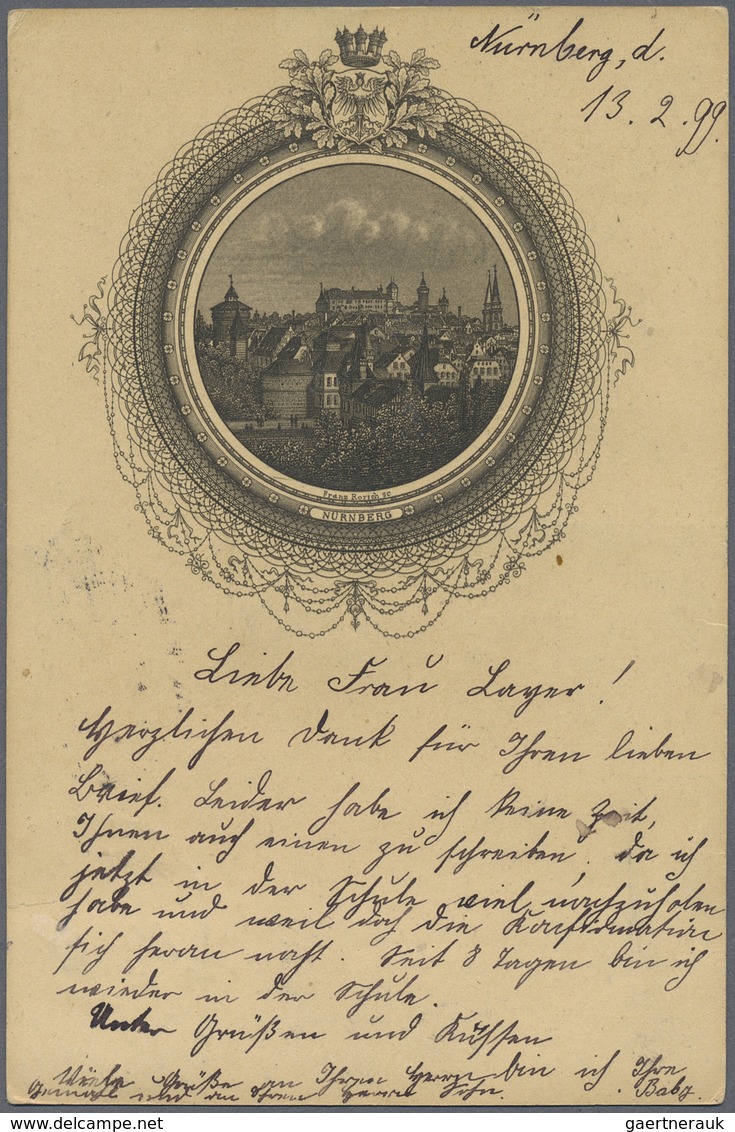 Nürnberg, d.
13. 2. 99.
Franz Rorich sc
NÜRNBERG
Liebe Frau Layer!
Herzlichen Dank für Ihren lieben
Brief. Leider habe ich keine Zeit,
Ihnen auch einen zu schreiben, da ich
jetzt in der Schule viel nachzuholen
habe und weil doch die Konfirmation
sich heran naht. Seit 8 Tagen bin ich
wieder in der Schule.
Unter Grüßen und Küssen
bin ich Ihre
Baby.
Viele Grüße an Ihren Herrn
Gemahl und an Ihren Herrn Sohn.
gaertnerauk@delcampe.net